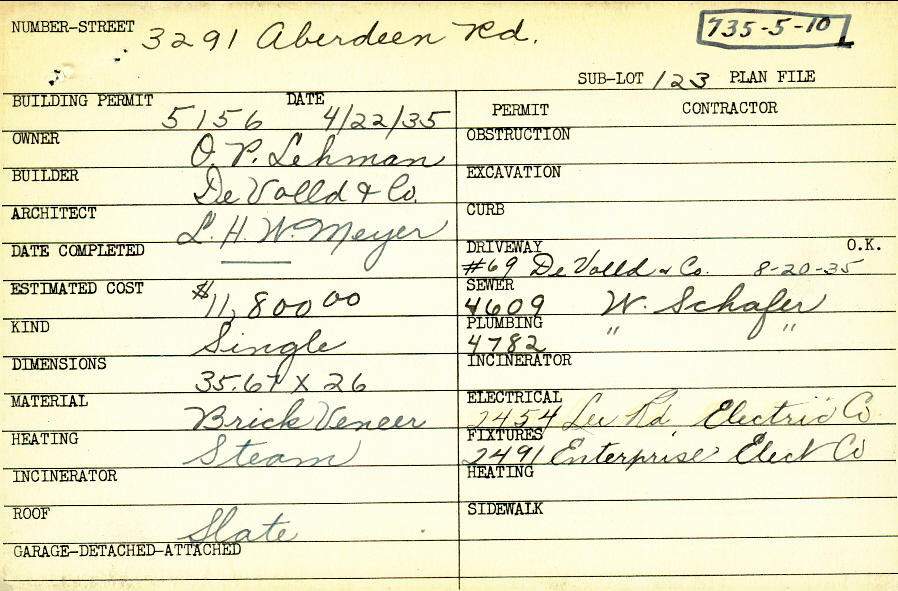 NUMBER-STREET 3291 Aberdeen Rd. 735-5-10
SUB-LOT 123 PLAN FILE
BUILDING PERMIT 5156 DATE 4/22/35
OWNER O. P. Lehman
BUILDER De Volld & Co.
ARCHITECT L. H. W. Meyer
DATE COMPLETED
ESTIMATED COST $11,800 00
KIND Single
DIMENSIONS 35.67 X 26
MATERIAL Brick Veneer
HEATING Steam
INCINERATOR
ROOF Slate
GARAGE-DETACHED-ATTACHED
PERMIT CONTRACTOR
OBSTRUCTION
EXCAVATION
CURB
DRIVEWAY O.K.
#69 De Volld & Co. 8-20-35
SEWER
4609 W. Schafer
PLUMBING
4782 " "
INCINERATOR
ELECTRICAL
2454 Lee Rd Electric Co
FIXTURES
2491 Enterprise Elect Co
HEATING
SIDEWALK